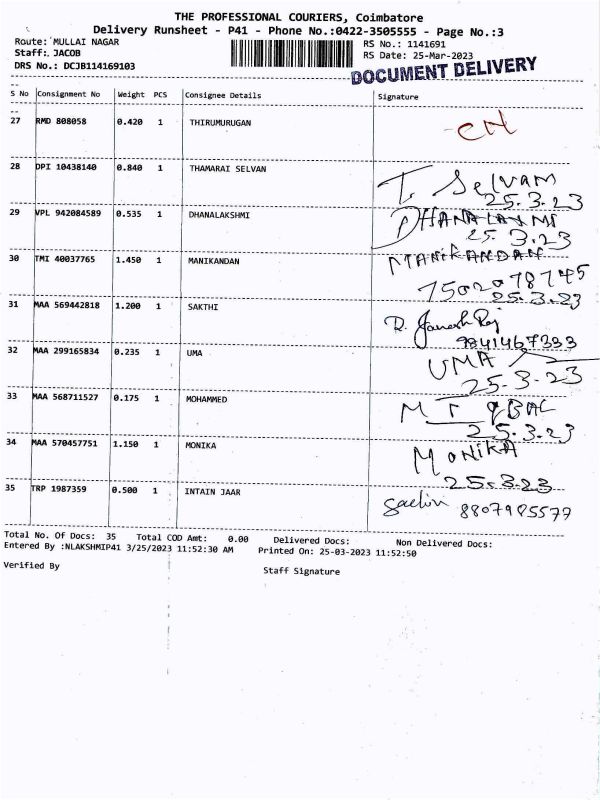 THE PROFESSIONAL COURIERS, Coimbatore
Delivery Runsheet - P41 - Phone No.:0422-3505555 - Page No.:3
Route: MULLAI NAGAR RS No.: 1141691
Staff: JACOB RS Date: 25-Mar-2023
DRS No.: DCJB114169103 DOCUMENT DELIVERY
S No Consignment No Weight PCS Consignee Details Signature
27 RMD 808058 0.420 1 THIRUMURUGAN
28 DPI 10438140 0.840 1 THAMARAI SELVAN T. SELVAM
25.3.23
29 VPL 942084589 0.535 1 DHANALAKSHMI DHANALAXMI
25.3.23
30 TMI 40037765 1.450 1 MANIKANDAN MANIKANDAN
7502078745
25.3.23
31 MAA 569442818 1.200 1 SAKTHI
9841467333
32 MAA 299165834 0.235 1 UMA UMA
25.3.23
33 MAA 568711527 0.175 1 MOHAMMED
25.3.23
34 MAA 570457751 1.150 1 MONIKA MONIKA
25.3.23
35 TRP 1987359 0.500 1 INTAIN JAAR 8807985577
Total No. Of Docs: 35 Total COD Amt: 0.00 Delivered Docs: Non Delivered Docs:
Entered By :NLAKSHMIP41 3/25/2023 11:52:30 AM Printed On: 25-03-2023 11:52:50
Verified By Staff Signature